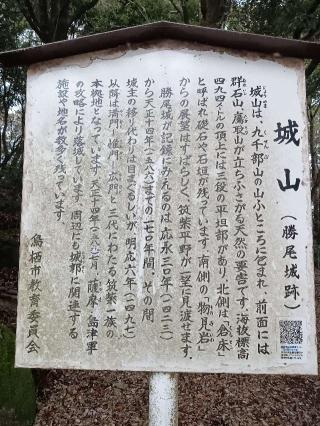 城山
（勝尾城跡）
城山は、九千部山の山ふところに包まれ、前面には
群石山、鷹取山が立ちふさがる天然の要害です。海抜標高
四九八㍍の頂上には三段の平坦部があり、北側は「倉床」
と呼ばれ礎石や石垣が残っています。南側の「物見岩」
からの展望はすばらしく、筑紫平野が一望に見渡せます。
勝尾城が記録にみえるのは、応永三〇年（一四二三）
から天正十四年（一五八六）までの一七〇年間、その間
城主の移り代わりは目まぐるしいが、明応六年（一四九七）
以降は満門、惟門、広門と三代にわたる筑紫一族の
本拠地となっています。天正十四年（一五八六）七月、薩摩・島津軍
の攻略により落城しています。周辺にも城郭に関連する
施設や地名が数多く残っています。
鳥栖市教育委員会